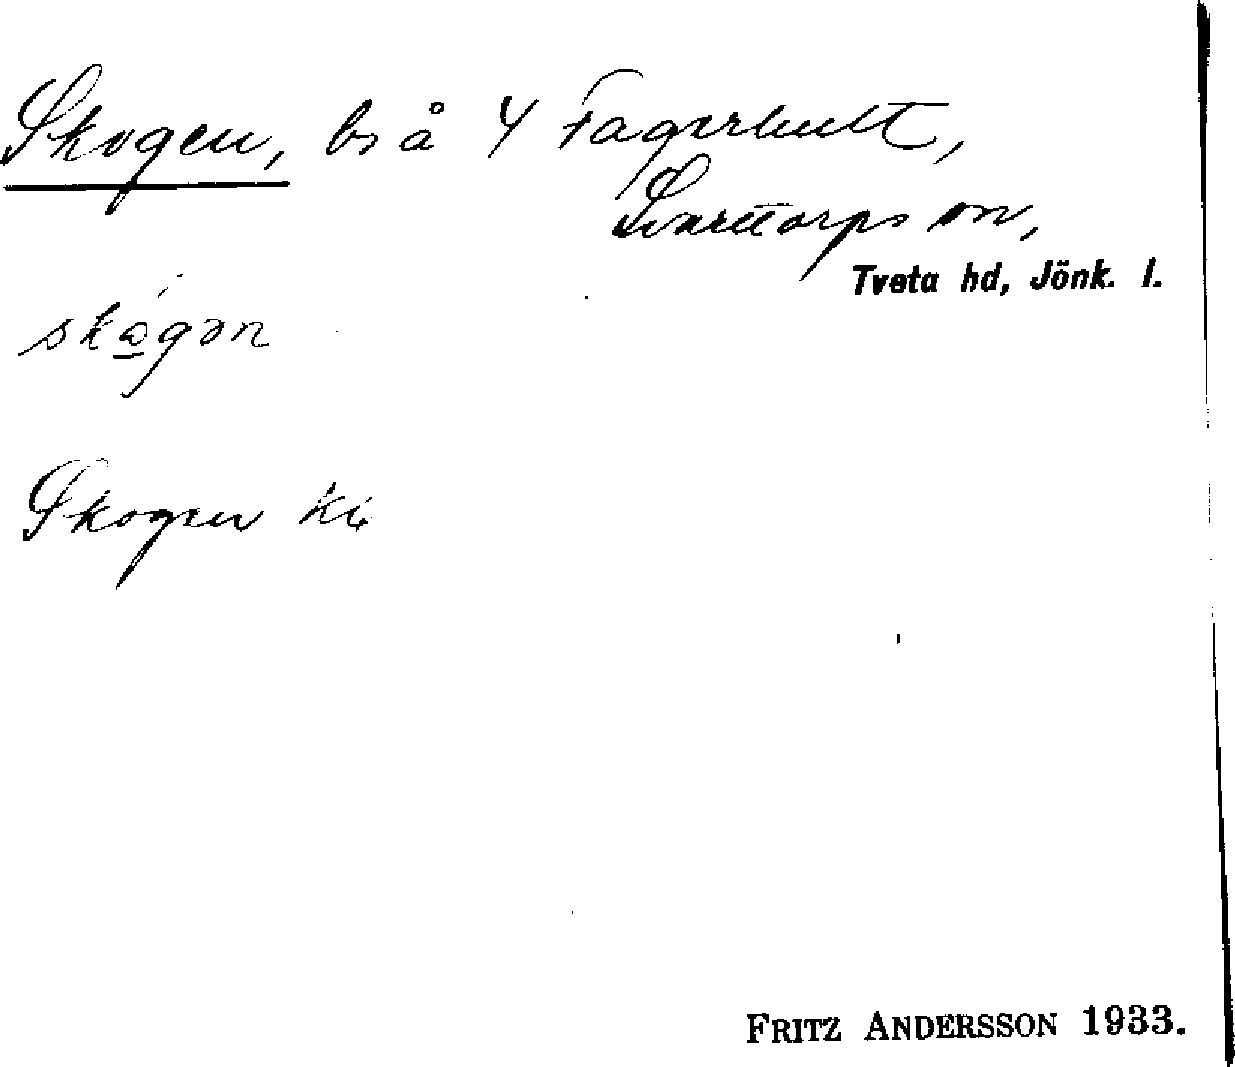 Skogen, bs å 4 Fagerhult,
Svarttorps sn,
Tveta hd, Jönk. l.
Skogen
FRITZ ANDERSSON 1933.